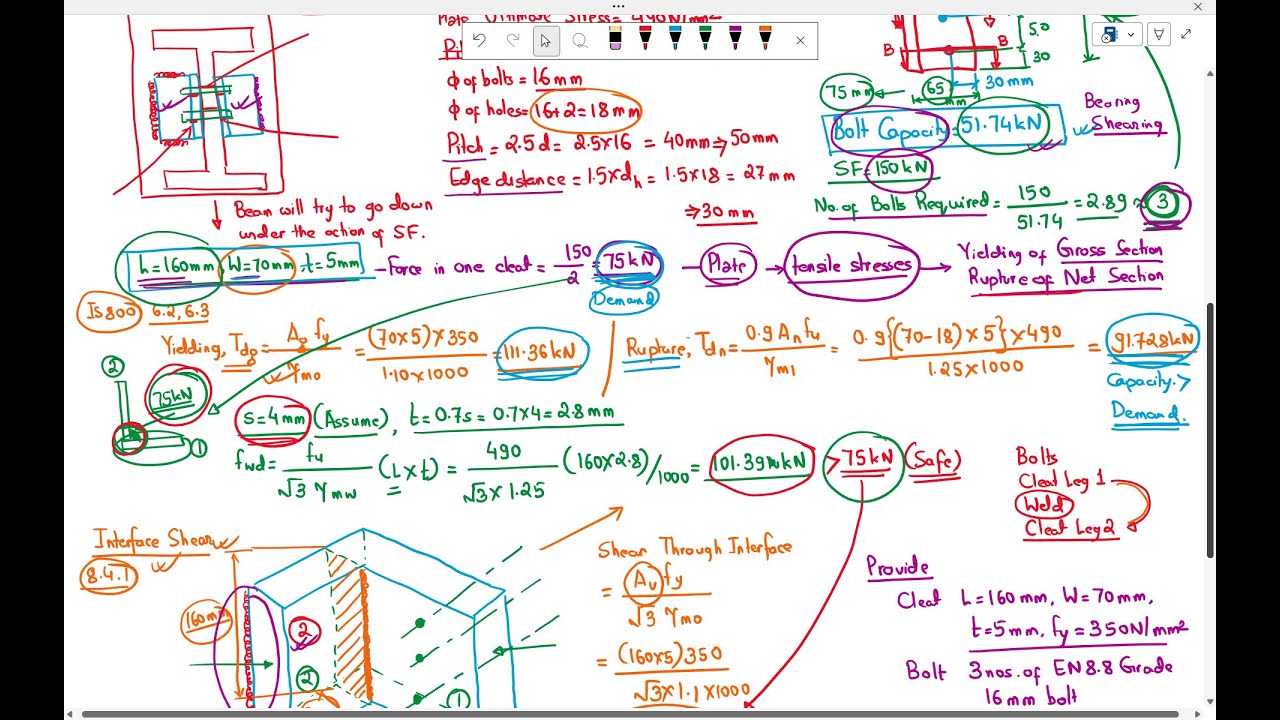 Plate Ultimate Stress = 490N/mm²
ϕ of bolts = 16mm
ϕ of holes = 16+2 = 18mm
Pitch = 2.5d = 2.5x16 = 40mm ⇒ 50mm
Edge distance = 1.5xdh = 1.5x18 = 27mm
⇒ 30mm
B B
50
30
75mm ← 65 mm 30mm
Bolt Capacity = 51.74kN
Bearing
Shearing
SF = 150kN
No. of Bolts Required = 150/51.74 = 2.89 ≈ 3
Beam will try to go down
under the action of SF.
h = 160mm, W = 70mm, t = 5mm - Force in one cleat = 150/2 = 75kN - Plate → tensile stresses → Yielding of Gross Section
Rupture of Net Section
Demand
IS800 6.2, 6.3
Yielding, Tdg = Ag fy/γmo = (70x5)x350/1.10x1000 = 111.36kN
Rupture, Tdn = 0.9Anfu/γm1 = 0.9{(70-18)x5}x490/1.25x1000 = 91.728kN
Capacity >
Demand.
2
75kN
1
S = 4mm (Assume), t = 0.7s = 0.7x4 = 2.8mm
fwd = fu/√3 γmw (Lxt) = 490/√3x1.25 (160x2.8)/1000 = 101.39kN > 75kN (Safe)
Bolts
Cleat Leg 1
Weld
Cleat Leg 2
Interface Shear
8.4.1
160mm
2
2
1
Shear Through Interface
= Av fy/√3 γmo
= (160x5)350/√3x1.1x1000
Provide
Cleat h = 160mm, W = 70mm,
t = 5mm, fy = 350N/mm²
Bolt 3nos. of EN8.8 Grade
16mm bolt